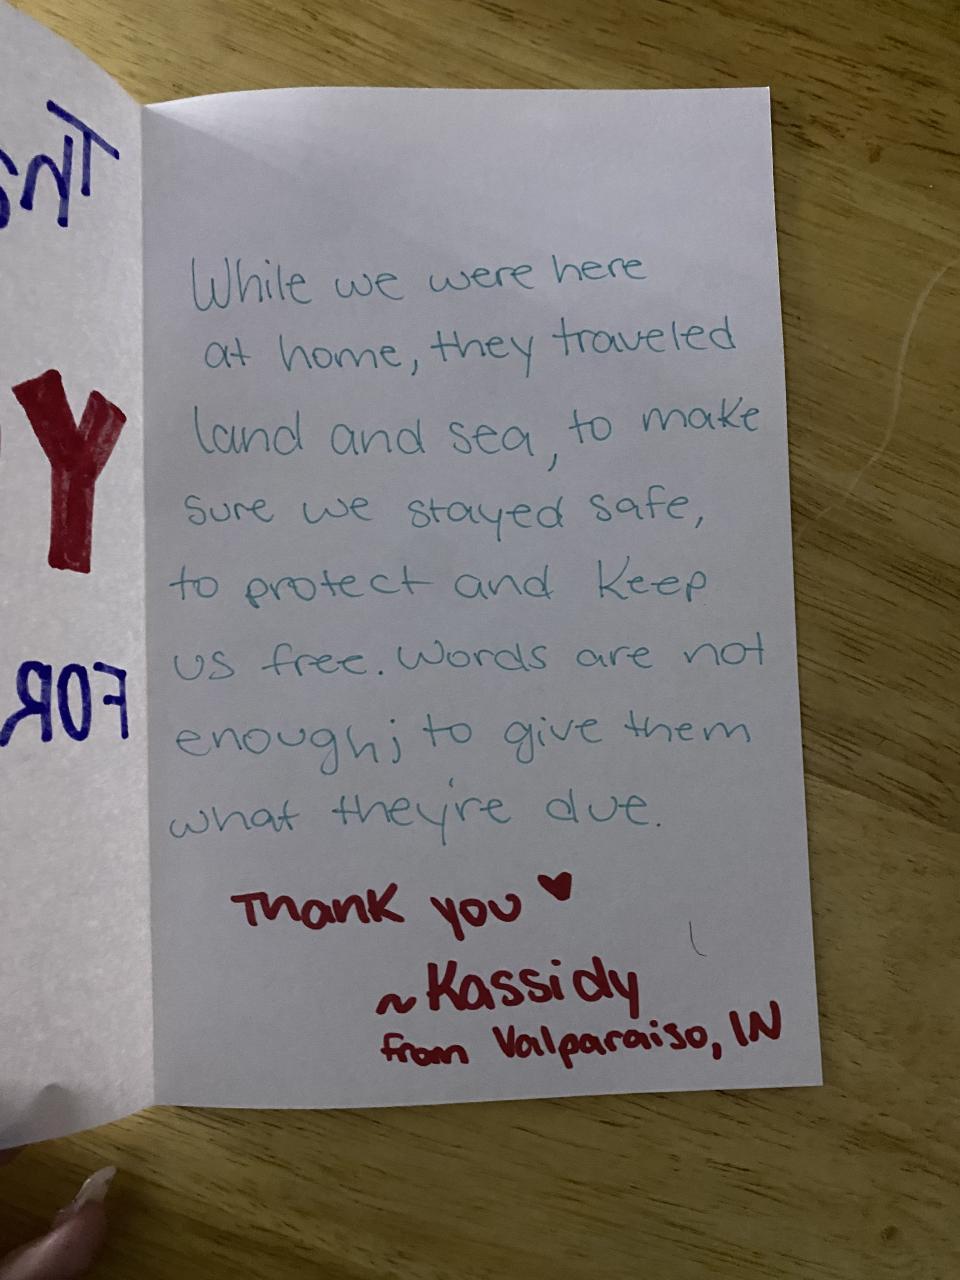 While we were here
at home, they traveled
land and sea, to make
sure we stayed safe,
to protect and keep
us free. Words are not
enough; to give them
what they're due.
Thank you ♥
~Kassidy
from Valparaiso, IN
Y
FOR